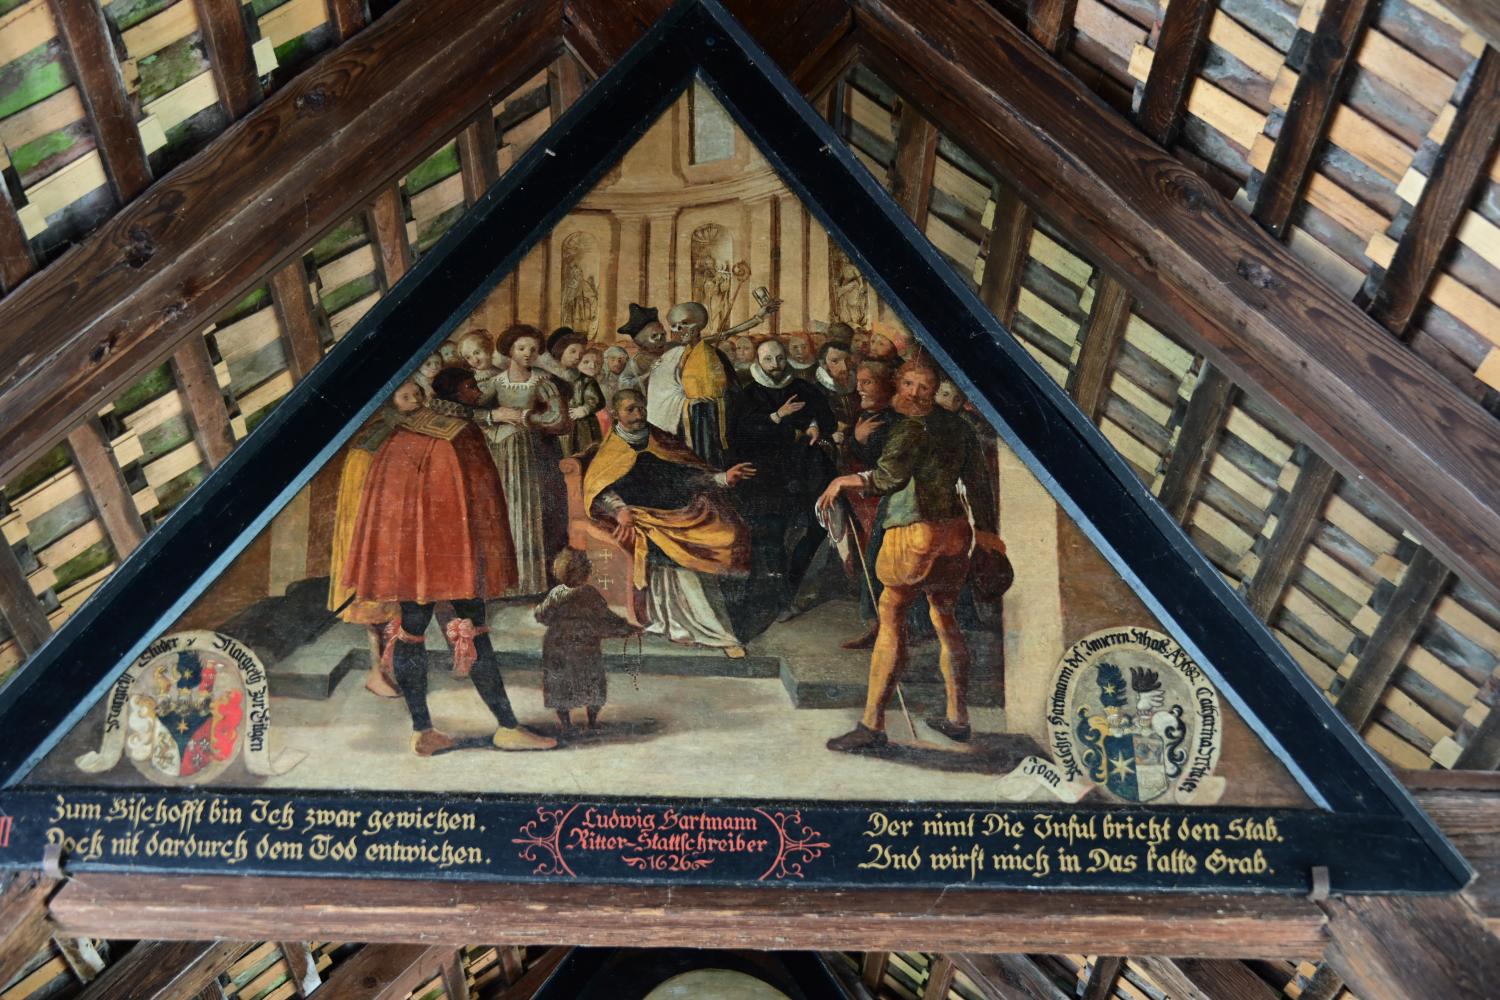 Margreth Studer v Margreth zur Gilgen
Joan Melcher Hartmann des Inneren Rhatß A° 1682. Catharina
II
Zum Bischofft bin Ich zwar gewichen.
Doch nit dardurch dem Tod entwichen.
Ludwig Hartmann
Ritter-Stattschreiber
1626
Der nimt Die Inful bricht den Stab.
Vnd wirft mich in Das kalte Grab.